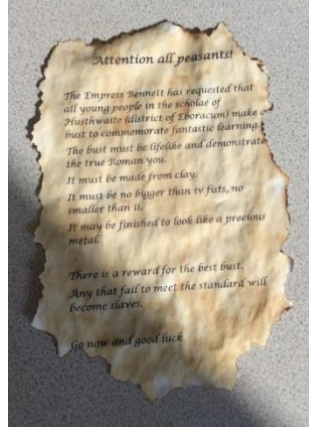 Attention all peasants!
The Empress Bennett has requested that
all young people in the scholae of
Husthwaite (district of Eboracum) make a
bust to commemorate fantastic learning.
The bust must be lifelike and demonstrate
the true Roman you.
It must be made from clay.
It must be no bigger than iv fists, no
smaller than ii.
It may be finished to look like a precious
metal.
There is a reward for the best bust.
Any that fail to meet the standard will
become slaves.
Go now and good luck